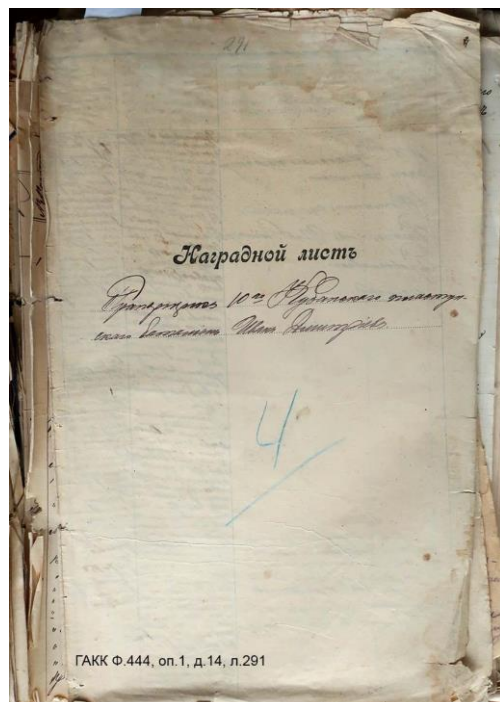 291
Наградной листъ
Прапорщика 10го Кубанскаго пластун-
скаго баталіона Иванъ Дмитріевъ
4
ГАКК Ф.444, оп.1, д.14, л.291